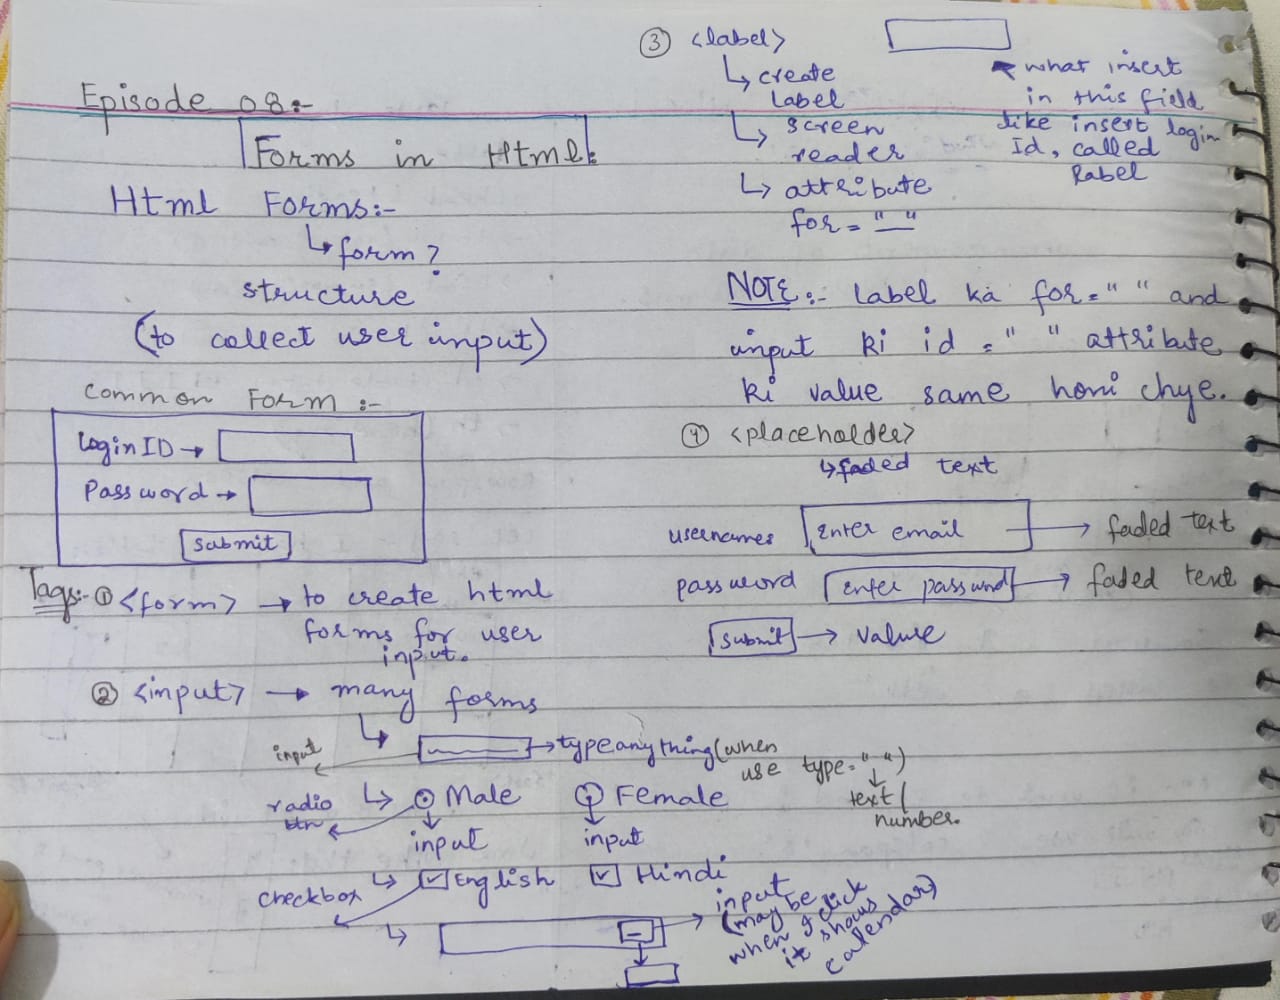 Episode 08:-
Forms in Html:
Html Forms:-
↳ form?
structure
(to collect user input)
Common Form :-
Login ID →
Password →
Submit
Tags:- ① <form> → to create html
forms for user
input.
② <input> → many forms
input
→ type anything (when
use type=" ")
text /
number.
radio
btn
↳ Male
Female
input
input
checkbox ↳ English
Hindi
↳
input
(may be
when I click
it shows
calendar)
③ <label>
↳ create
Label
↳ screen
reader
↳ attribute
for = " "
what insert
in this field
like insert login
Id, called
Label
NOTE:- Label ka for=" " and
input ki id = " " attribute
ki value same honi chye.
④ <placeholder>
↳ faded text
usernames Enter email → faded text
password Enter password → faded text
Submit → value